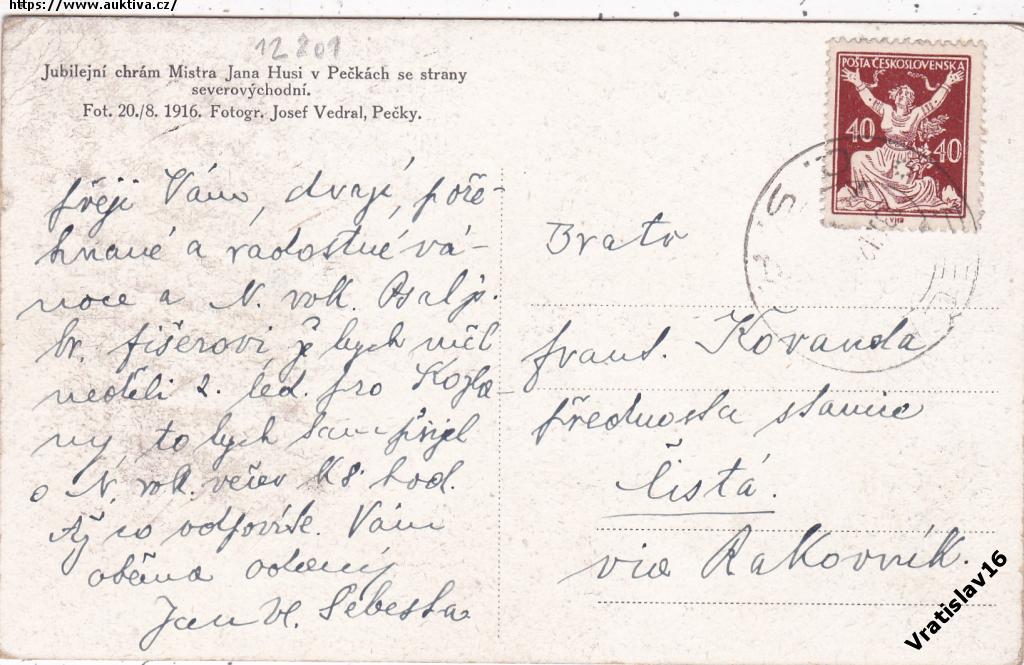 https://www.auktiva.cz/
12801
Jubilejní chrám Mistra Jana Husi v Pečkách se strany
severovýchodní.
Fot. 20./8. 1916. Fotogr. Josef Vedral, Pečky.
POŠTA ČESKOSLOVENSKA
40 40
přeji Vám, drazí, pože-
hnané a radostné vá-
noce a N. rok. Psal js.
br. fišerovi že bych měl
neděli 2. led. pro Kozla-
ny, to bych tam přijel
o N. rok. večer k 8 hod.
Až co odpovíte. Vám
oběma oddaný
Jan Vl. Šebesta
Bratr
frant. Kořanda
přednosta stanice
Čistá.
via Rakovník.
Vratislav16